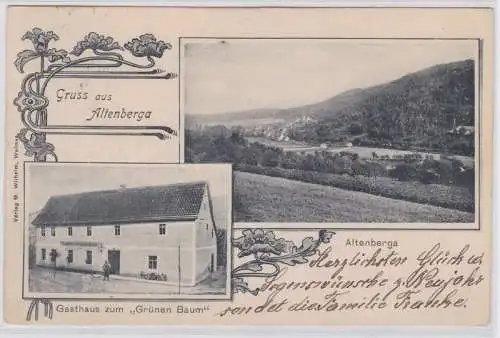 Gruss aus
Altenberga
Verlag M. Wilhelm,
Gasthaus zum „Grünen Baum“
Altenberga
Herzlichsten Glück u.
Segenswünsche z. Neujahr
sendet die Familie Franke.